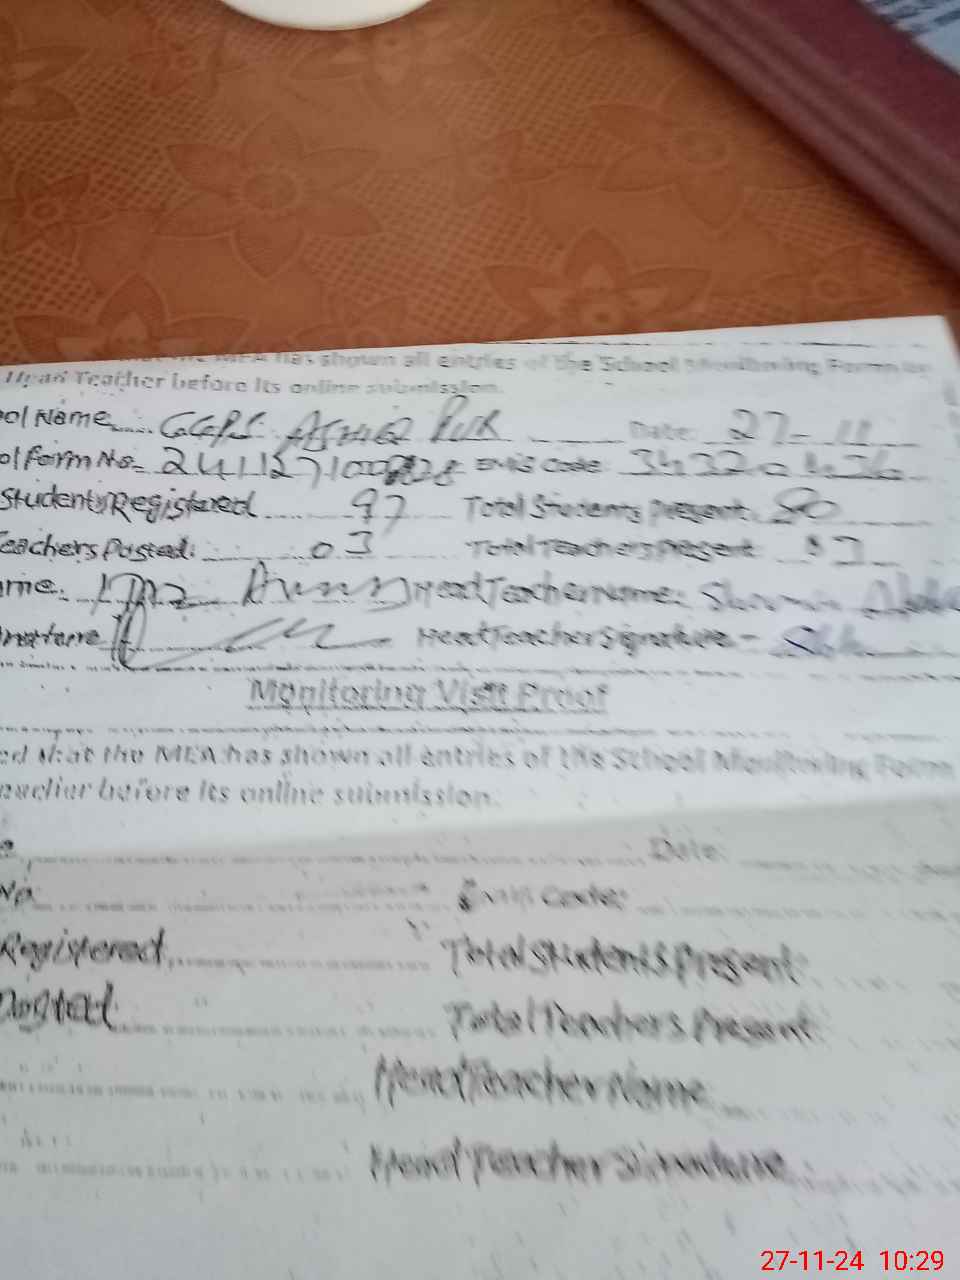 MEA has shown all entries of the School Monitoring Form
Head Teacher before its online submission.
ool Name GGPS Date: 27-11
ol Form No. EMIS Code:
Students Registered 97 Total Students Present 80
Teachers Posted: 03 Total Teachers Present
me: Head Teacher Name:
nature Head Teacher Signature -
Monitoring Visit Proof
ed that the MEA has shown all entries of the School Monitoring Form
eacher before its online submission.
Date:
No. Emis Code:
Registered Total Students Present
Posted Total Teachers Present
Head Teacher Name
Head Teacher Signature
27-11-24 10:29